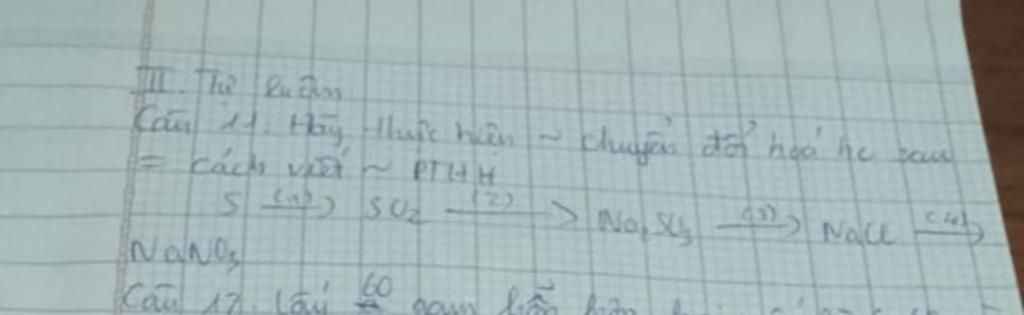 III. Tự luận
Câu 11. Hãy thực hiện ~ chuyển đổi hoá hc sau
= cách viết ~ PTHH
S (1)→ SO2 (2)→ Na2SO3 (3)→ NaCl (4)→
NaNO3
Câu 12. Lấy 60 gam